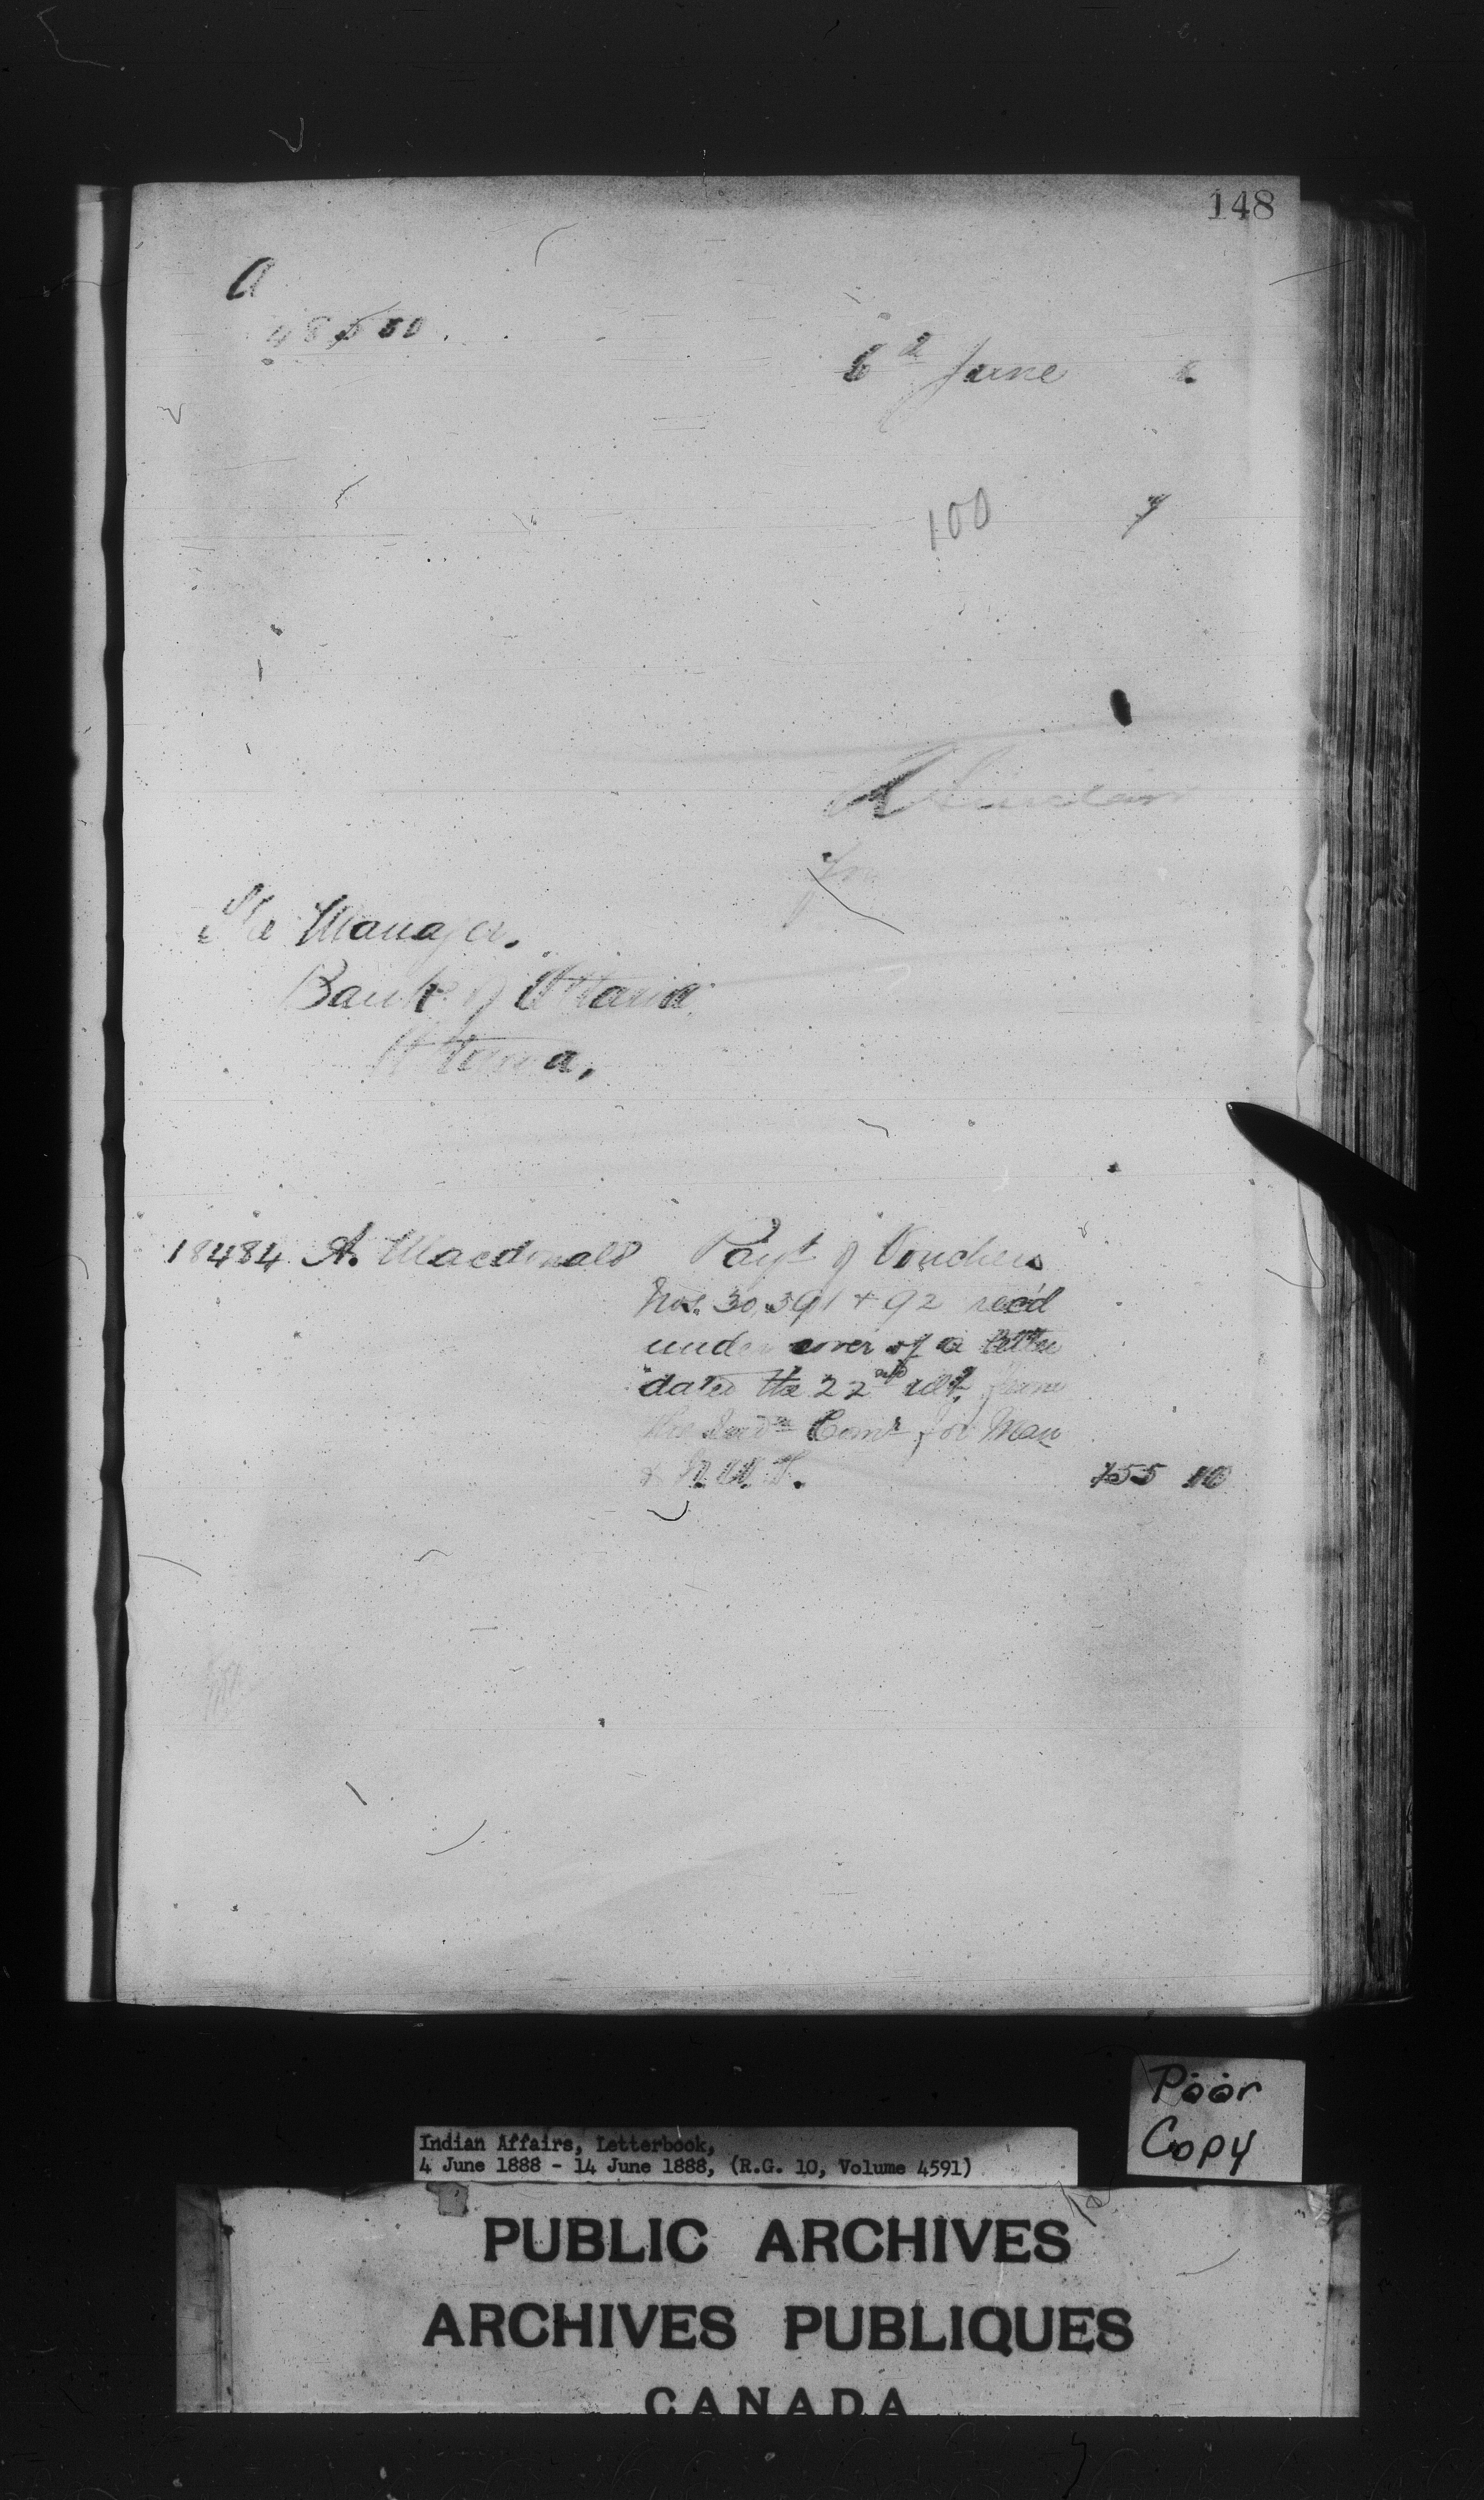 148
A
48,550
6th June 8.
100 7
R Sinclair
for
The Manager,
Bank of Ottawa
Ottawa,
18484 A. Macdonald Payt of Vouchers
Nos. 30,391 + 92 rec'd
under cover of a letter
dated the 22nd ult. from
the Indn Comr for Man
& N.W.T. 155 10
Poor
Copy
Indian Affairs, Letterbook,
4 June 1888 - 14 June 1888, (R.G. 10, Volume 4591)
PUBLIC ARCHIVES
ARCHIVES PUBLIQUES
CANADA